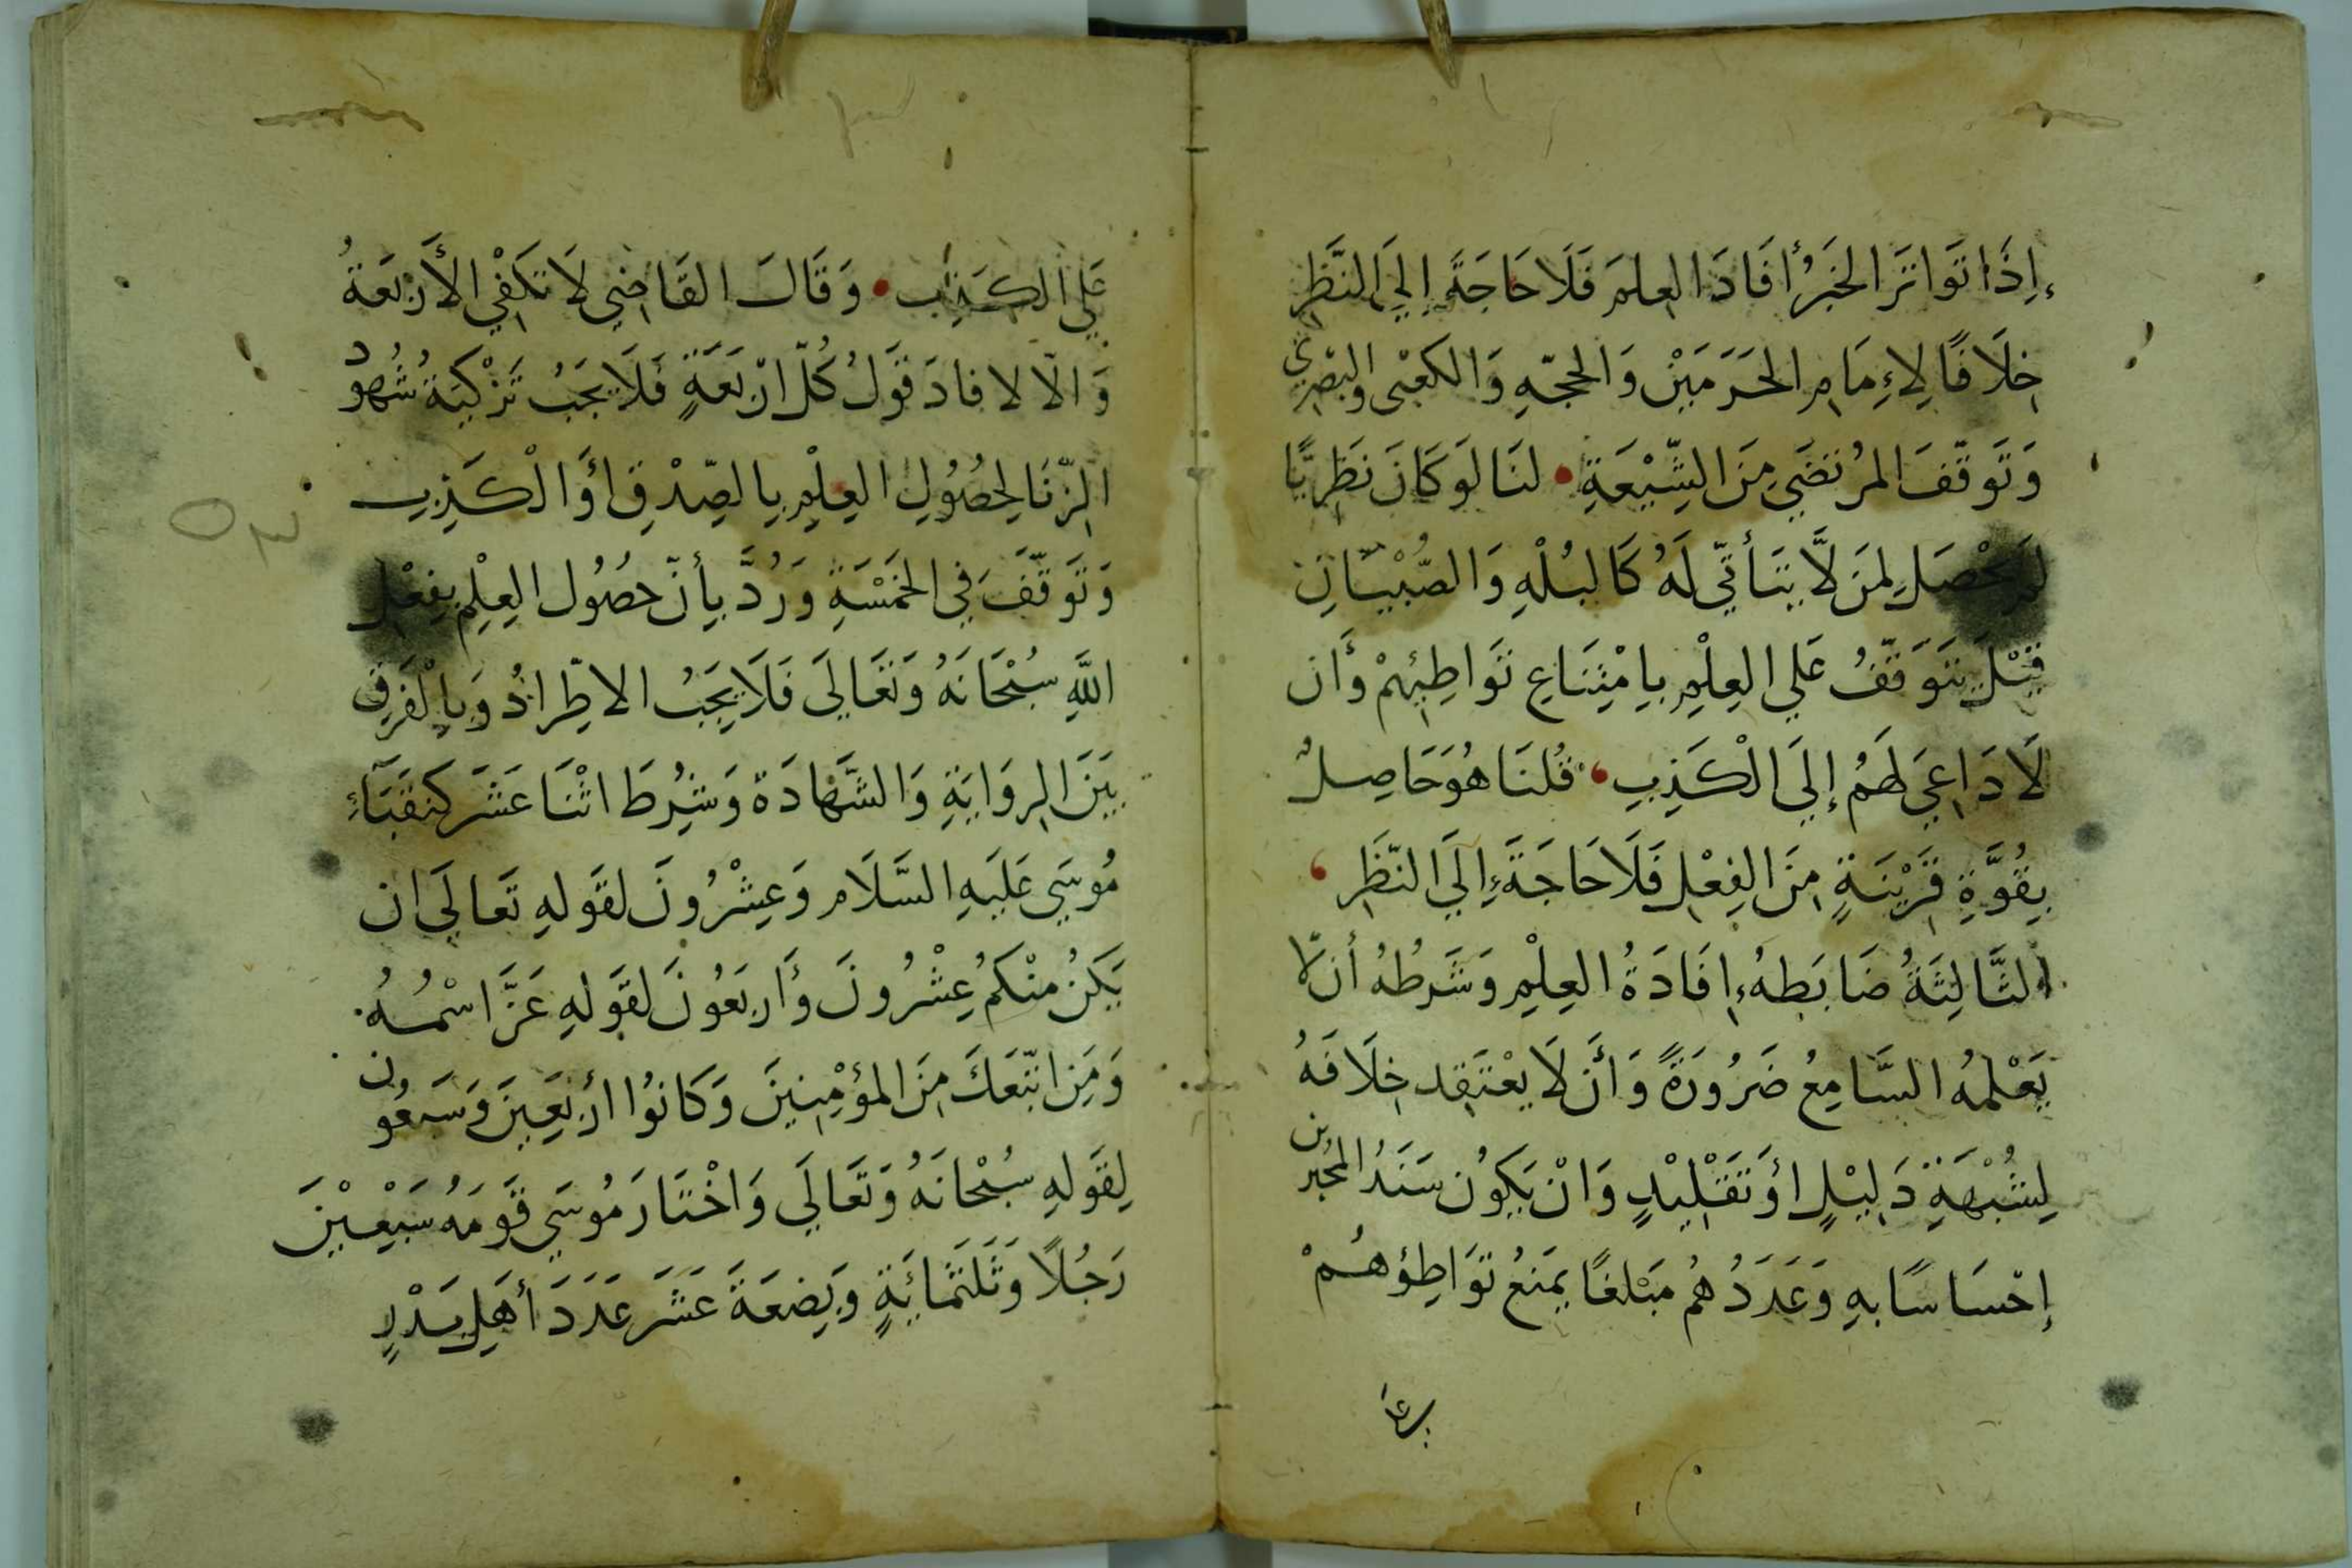 إِذَا تَوَاتَرَ الخَبَرُ أَفَادَ العِلمَ فَلَا حَاجَةَ إِلَي النَّظَرِ
خِلَافًا لِإِمَامِ الحَرَمَيْنِ وَالحجّهِ وَالكَعْبى وَالبَصْرِيّ
وَتَوَقّفَ المُرتَضَي مِنَ الشِّيْعَةِ • لنَا لَو كَانَ نَظَرِيًّا
لَم يَحْصَل لِمَن لَّا يَتَأَتّي لَهُ كَالبُلْهِ وَالصُّبْيَانِ
قِيْلَ يَتَوَقّفُ عَلي العِلْمِ بِامْتِنَاعِ تَوَاطِئِهِمْ وَأَن
لَا دَاعِيَ لَهُم إِلَي الْكَذِبِ • قُلنَا هُوَ حَاصِلٌ
بِقُوَّةٍ قَرِيْنَةٍ مِنَ الفِعْلِ فَلَا حَاجَةَ إِلَي النّظَرِ
الثَّالِثَةُ ضَابَطهُ إِفَادَةُ العِلْمِ وَشَرطُهُ أَن لّا
يَعْلمهُ السَّامِعُ ضَرُورَةً وَأَن لَا يعْتَقِد خِلَافَهُ
لِشُبْهَةِ دَلِيْلٍ أَوْ تَقْلِيْدٍ وَانْ يَكُون سَنَدُ المُخبرين
إِحْسَاسًا بهِ وَعَدَدُهُم مَبْلغًا يمَنعُ تَوَاطِؤهُمْ
عَلي الكَذِب • وَقَالَ القَاضِي لَا تكَفْي الأَرْبَعَةُ
وَالّا لافادَ قَولُ كُلّ ارْبَعَةٍ فَلَا يَجَبُ تَزْكيَة شُهُود
الزّنَا لِحصُوُلِ العِلْمِ بِالصِّدْقِ أَوَ الْكَذِبِ
وَتَوَقّفَ فِي الخَمْسَةِ وَرُدَّ بِأَنّ حصُوُل العِلْمِ بِفِعْلِ
اللهِ سُبْحَانَهُ وَتَعَالَي فَلَا يَجَبُ الاطِّرَادُ وَبِالْفَرقِ
بَيَنَ الرِوَايَةِ وَالشَّهَادَة وَشُرِطَ اثْنَا عَشَر كنقَبَآءِ
مُوسَي عَلَيهِ السَّلَام وَعِشْرُونَ لقَولهِ تَعالَي ان
يَكَنُ منْكُم عِشْرُونَ وَأَربَعُونَ لقَولهِ عَزَّ اسْمُهُ
وَمَنِ اتّبَعَكَ مِنَ المؤمْنِينَ وَكَانوُا أرْبَعِينَ وَسَبعُون
لِقَولهِ سُبْحَانَهُ وَتَعَالَي وَاخْتَارَ مُوسَي قَومَهُ سَبْعِيْنَ
رَجُلًا وَثَلَثمَائَةٍ وَبِضعَةَ عَشَر عَدَدَ أَهَلِ بَدْرٍ